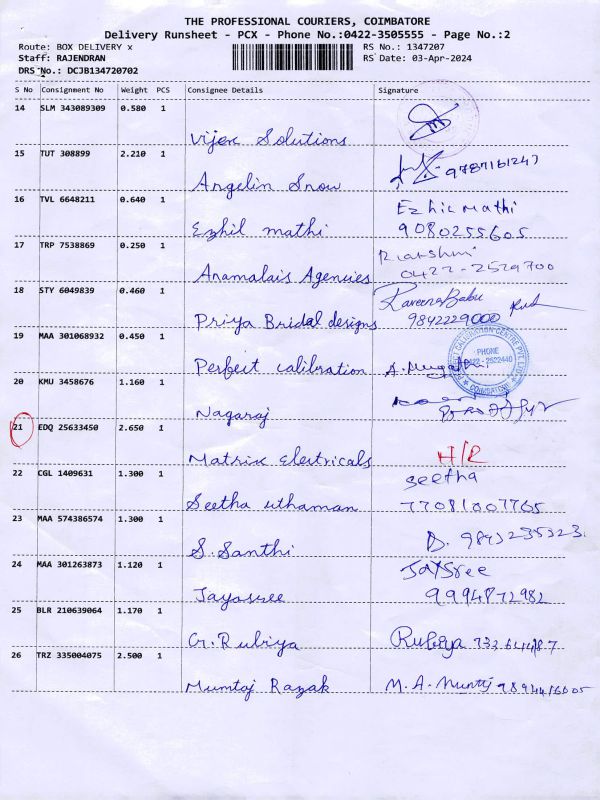 THE PROFESSIONAL COURIERS, COIMBATORE
Delivery Runsheet - PCX - Phone No.:0422-3505555 - Page No.:2
Route: BOX DELIVERY x RS No.: 1347207
Staff: RAJENDRAN RS Date: 03-Apr-2024
DRS No.: DCJB134720702
S No Consignment No Weight PCS Consignee Details Signature
14 SLM 343089309 0.580 1
Vijex Solutions
15 TUT 308899 2.210 1
Angelin Snow 9787161247
16 TVL 6648211 0.640 1 Ezhil Mathi
Ezhil mathi 9080255605
17 TRP 7538869 0.250 1
Anamalais Agencies 0422-2529700
18 STY 6049839 0.460 1 Raveena Babu
Priya Bridal designs 9842229000
19 MAA 301068932 0.450 1
CALIBRATION CENTRE PVT LTD
PHONE
0422-2522440
COIMBATORE
Perfect calibration
20 KMU 3458676 1.160 1
Nagaraj
21 EDQ 25633450 2.650 1
Matrix Electricals H/R
22 CGL 1409631 1.300 1 seetha
Seetha uthaman 77081007765
23 MAA 574386574 1.300 1
S. Santhi
24 MAA 301263873 1.120 1 JaySree
Jayasree 9994872982
25 BLR 210639064 1.170 1
G. Rubiya Rubiya
26 TRZ 335004075 2.500 1
Mumtaj Razak M. A.